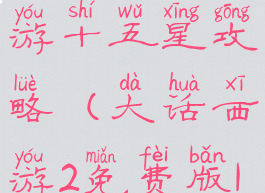 yóu shí wǔ xīng gōng
游十五星攻
lüè dà huà xī
略(大话西
yóu miǎn fèi bǎn
游2免费版1